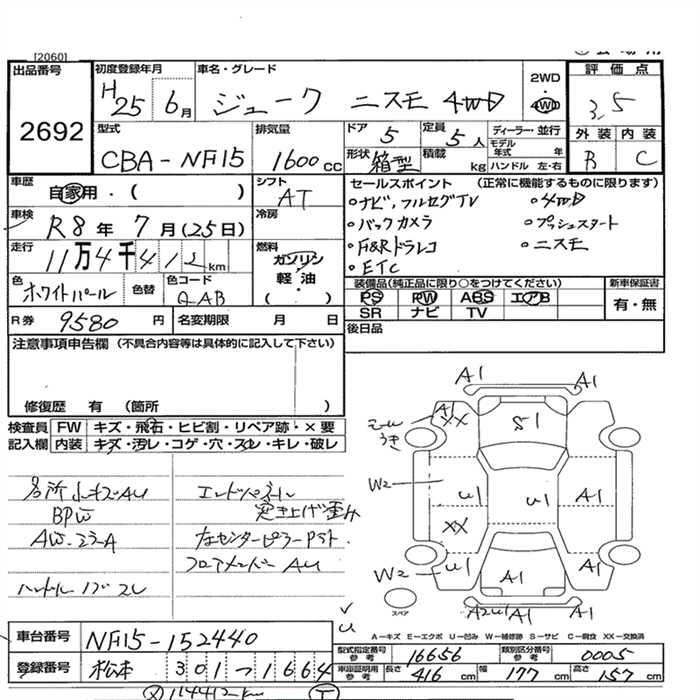 [2060]
出品番号
2692
初度登録年月
H25 6月
車名・グレード
ジューク ニスモ 4WD
2WD
・
4WD
評価点
3.5
外装 内装
B C
型式
CBA-NF15
排気量
1600cc
ドア 5
定員 5人
形状 箱型
積載 kg
ディーラー・並行
モデル年式 年
ハンドル 左・右
車歴
自家用・( )
シフト
AT
車検
R8年7月(25日)
冷房
走行
11万4千412km
燃料
ガソリン
軽油
( )
色
ホワイトパール
色替
色コード
QAB
R券 9580円
名変期限 月 日
セールスポイント (正常に機能するものに限ります)
・ナビ,フルセグTV ・4WD
・バックカメラ ・プッシュスタート
・F&Rドラレコ ・ニスモ
・ETC
装備品(純正品に限り○をつけてください)
PS PW ABS エアB
SR ナビ TV
新車保証書
有・無
後日品
注意事項申告欄 (不具合内容等は具体的に記入して下さい)
修復歴 有 (箇所 )
検査員記入欄
FW キズ・飛石・ヒビ割・リペア跡・×要
内装 キズ・汚レ・コゲ・穴・スレ・キレ・破レ
各所小キズAU
BPW
AW-コーA
ハンドル イブ スレ
エンドパネル
突き上げ歪み
右センターピラーPスト
フロアメンバーAU
A1 A1
モールうき
A1
XX
S1
W2
U1
U1
A1
XX
W2
U1
A1
A1
A2U1 A1 A1
スペア
A-キズ E-エクボ U-凹み W-補修跡 S-サビ C-腐食 XX-交換済
車台番号
NF15-152440
登録番号
松本 301 ~ 1664
型式指定番号 参考 16656
類別区分番号 参考 0005
車庫証明用 参考
長さ 416cm
幅 177cm
高さ 157cm